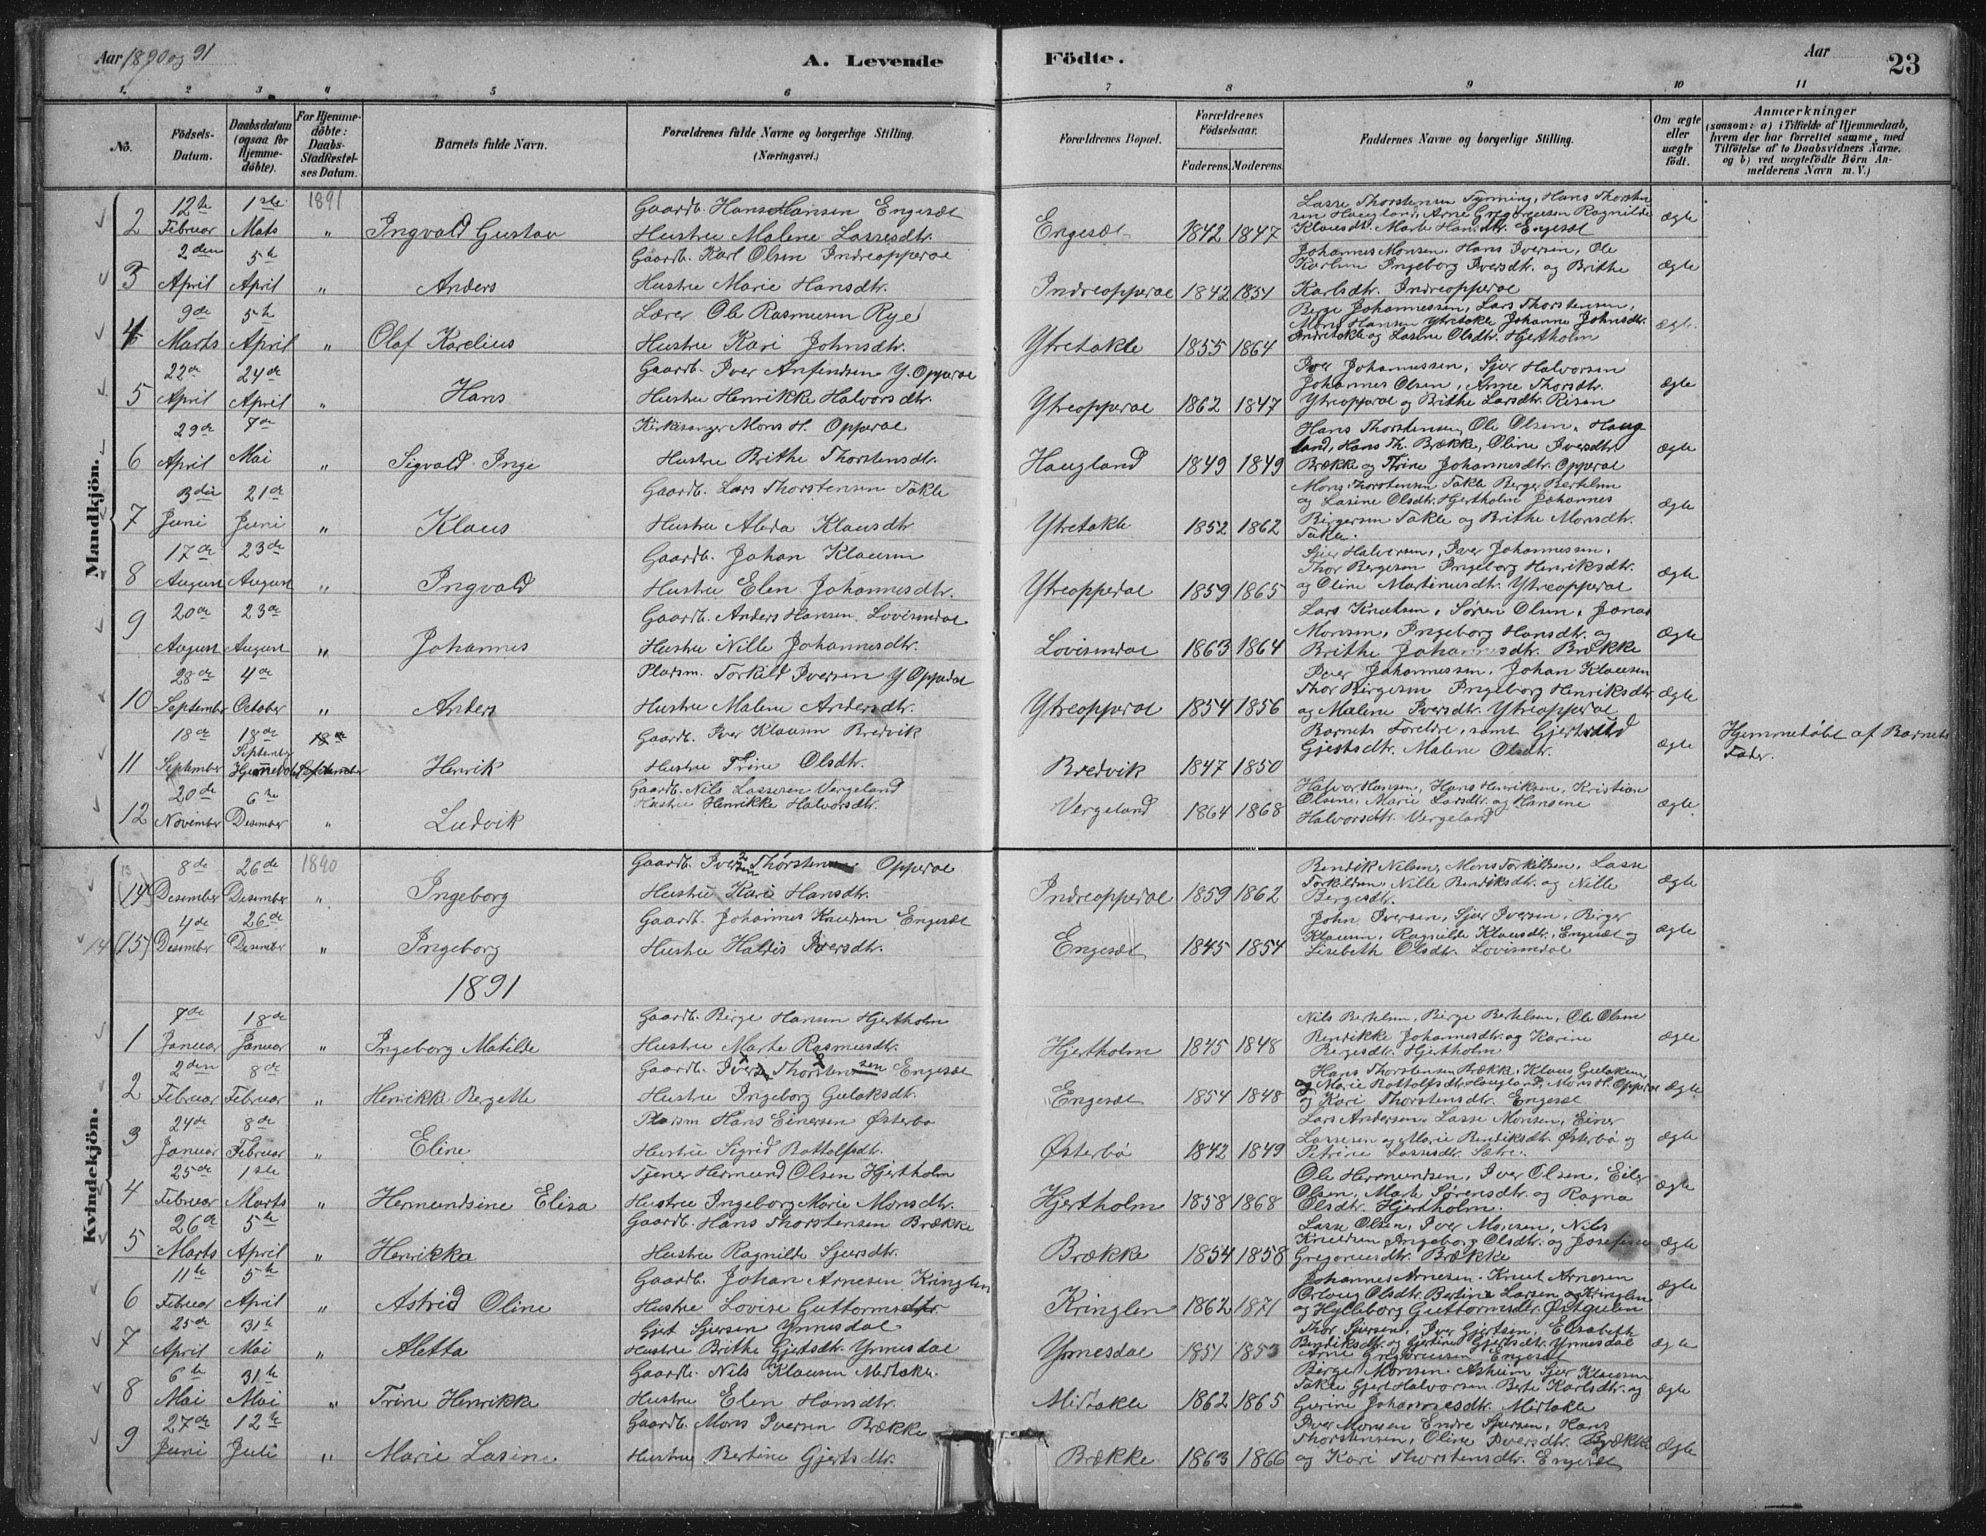 Aar 1890 og 91
A. Levende Födte.
Aar
23
1. 2 3 4 5 6 7 8 9 10 11
No.
Födsels-Datum.
Daabsdatum (ogsaa for Hjemme-döbte).
For Hjemme-döbte: Daabs-Stadfestel-ses Datum.
Barnets fulde Navn.
Forældrenes fulde Navne og borgerlige Stilling. (Næringsvei.)
Forældrenes Bopæl.
Forældrenes Födselsaar.
Faderens. Moderens.
Faddernes Navne og borgerlige Stilling.
Om ægte eller uægte födt.
Anmærkninger
(saasom: a) i Tilfælde af Hjemmedaab, hvem der har forrettet samme, med Tilföielse af to Daabsvidners Navne, og b) ved uægtefödte Börn An-melderens Navn m. V.)
Mandkjön.
1891
2 12te Februar 1ste Mats " Ingvald Gustav
Gaardb. Hans Hansen Engesæt
Hustru Malene Lassesdtr.
Engesæt 1842 1847
Lasse Thorstensen Tynning, Hans Thorsten
sen Haugland, Arne Gregoriussen Ragnilde
Klausdtr. Marte Hansdtr. Engesæt
ægte
3 2den April 5te April " Anders
Gaardb. Karl Olsen Indreoppedal
Hustru Marie Hansdtr.
Indreoppedal 1842 1854
Johannes Monsen, Hans Iversen, Ole
Karlsen Ingeborg Iversdtr. og Brithe
Karlsdtr. Indreoppedal
ægte
4 9de Marts 5te April " Olaf Karelius
Lærer Ole Rasmusen Rye
Hustru Kari Johnsdtr.
Ytretakle 1855 1864
Berge Johannessen, Lars Thorstensen,
Mons Hansen Ytretakle Johanne Johnsdtr.
Indretakle og Lasine Olsdtr. Hjertholm
ægte
5 22de April 24de April " Hans
Gaardb. Iver Anfindsen Y. Oppedal
Hustru Henrikke Halvorsdtr.
Ytreoppedal 1862 1847
Iver Johannessen, Sjur Halvorsen
Johannes Olsen, Anne Thorsdtr.
Ytreoppedal og Brithe Larsdtr. Risen
ægte
6 29de April 7de Mai " Sigvald Inge
Kirkesanger Mons H. Oppedal
Hustru Brithe Thorstensdtr.
Haugland 1849 1849
Hans Thorstensen, Ole Olsen, Haug
land, Hans Th. Brække, Oline Iversdtr.
Brække og Trine Johannesdtr. Oppedal
ægte
7 3die Juni 21de Juni " Klaus
Gaardb. Lars Thorstensen Takle
Hustru Alida Klausdtr.
Ytretakle 1852 1862
Mons Thorstensen Takle Berger Bertelsen
og Lasine Olsdtr. Hjertholm Johannes
Birgersen Takle og Brithe Monsdtr.
Takle.
ægte
8 17de August 23de August " Ingvald
Gaardb. Johan Klausen
Hustru Elen Johannesdtr.
Ytreoppedal 1859 1865
Sjur Halvorsen, Iver Johannessen,
Thor Bergesen Ingeborg Henriksdtr.
og Oline Martinusdtr. Ytreoppedal
ægte
9 20de August 23de August " Johannes
Gaardb. Anders Hansen Lovisendal
Hustru Nille Johannesdtr.
Lovisendal 1863 1864
Lars Knutsen, Søren Olsen, Jonas
Monsen, Ingeborg Hansdtr. og
Brithe Johannesdtr. Brække
ægte
10 28de September 4de October " Anders
Pladsm. Torkild Iversen Y Oppedal
Hustru Malene Andersdtr.
Ytreoppedal 1854 1856
Iver Johannessen, Johan Klausen
Thor Birgesen Ingeborg Henriksdtr
og Malene Iversdtr. Ytreoppedal
ægte
11 18de September 18de September Hjemmedøbt 18de September Henrik
Gaardb. Iver Klausen Bredvik
Hustru Trine Olsdtr.
Bredvik 1847 1850
Barnets Foreldre, samt Gjertrud
Gjertsdtr. Malene Olsdtr.
ægte
Hjemmedøbt af Barnets
Fader.
12 20de November 6te Desember " Ludvik
Gaardb. Nils Lassesen Vergeland
Hustru Henrikke Halvorsdtr.
Vergeland 1864 1868
Halvor Hansen, Hans Henriksen, Kristian
Olsen, Marie Larsdtr. og Hansine
Halvorsdtr. Vergeland
ægte
Kvindekjön.
1890
13 (14) 8de Desember 26de Desember " Ingeborg
Gaardb. Iversen Thorsten Oppedal
Hustru Kari Hansdtr.
Indreoppedal 1859 1862
Bendik Nilsen, Mons Torkildsen, Lasse
Torkildsen, Nille Bendiksdtr. og Nille
Bergesdtr.
ægte
14 (15) 4de Desember 26de Desember " Ingeborg
Gaardb. Johannes Knudsen Engesæt
Hustru Haldis Iversdtr.
Engesæt 1845 1854
John Iversen, Sjur Iversen, Birger
Klausen, Ragnilde Klausdtr. Engesæt og
Lisebeth Olsdtr. Lovisendal
ægte
1891
1 7de Januar 18de Januar " Ingeborg Matilde
Gaardb. Birge Hansen Hjertholm
Hustru Marte Rasmusdtr.
Hjertholm 1845 1848
Nils Bertelsen, Birge Bertelsen, Ole Olsen
Bendikke Johannesdtr. og Karine
Bergesdtr. Hjertholm
ægte
2 2den Februar 8de Februar " Henrikke Bergette
Gaardb. Iver Thorstensen Engesæt
Hustru Ingeborg Gulaksdtr.
Engesæt 1854 1848
Hans Thorstensen Brække, Klaus Gulaksen
og Marie Bottolfsdtr. Haugland, Mons H. Oppedal
og Kari Thorstensdtr. Engesæt
ægte
3 24de Januar 8de Februar " Eline
Pladsm Hans Einersen Østerbø
Hustru Sigrid Bottolfsdtr.
Østerbø 1842 1849
Lars Andersen, Lasse Monsen, Einer
Lassesen og Marie Bendiksdtr. Østerbø og
Petrine Lassesdtr. Sætre.
ægte
4 25de Februar 1ste Marts " Hermundsine Elisa
Tjener Hermund Olsen Hjertholm
Hustru Ingeborg Marie Monsdtr.
Hjertholm 1858 1868
Ole Hermundsen, Iver Olsen, Eiler
Olsen, Marte Sørensdtr. og Ragna
Olsdtr. Hjertholm.
ægte
5 26de Marts 5te April " Henrikka
Gaardb. Hans Thorstensen Brække
Hustru Ragnilde Sjursdtr.
Brække 1854 1858
Lasse Olsen, Iver Monsen, Nils
Knudsen Ingeborg Olsdtr. og Josefine
Gregoriusdtr. Brække
ægte
6 11te Februar 5te April " Astrid Oline
Gaardb. Johan Arnesen Kringlen
Hustru Lovise Guttormsdtr.
Kringlen 1862 1871
Johannes Arnesen, Knut Arnesen
Orloug Olsdtr. Bertine Larsen og Kringlen
og Hylleborg Guttormsdtr. Østgulen
ægte
7 25de April 31te Mai " Aletta
Gjert Sjursen Ynnesdal
Hustru Brithe Gjertsdtr. Ynnesdal
Ynnesdal 1851 1853
Thor Sjursen, Iver Gjertsen, Elisabeth
Bendiksdtr. og Gjertine Gjertsdtr. Ynnesdal
Arne Gregoriussen Engesæt
ægte
8 6te Mai 31te Mai " Trine Henrikke
Gaardb. Nils Klausen Mittakle
Hustru Elen Hansdtr.
Midtakle 1862 1865
Berge Monsen Sjur Klausen
Takle Gjert Halvorsen Berte Karlsdtr. og
Gurine Johannesdtr. Midtakle
ægte
9 27de Juni 12te Juli " Marie Lasine
Gaardb. Mons Iversen Brække
Hustru Bertine Gjertsdtr.
Brække 1863 1866
Iver Monsen Endre Sjursen, Hans
Thorstensen, Oline Iversdtr. Brække
og Kari Thorstensdtr. Engesæt
ægte